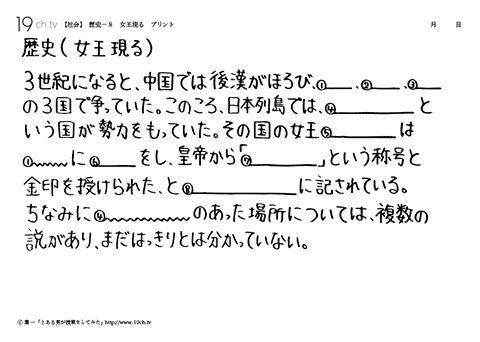 19ch.tv 【社会】 歴史－8 女王現る プリント 月 日
歴史(女王現る)
3世紀になると、中国では後漢がほろび、①____、②____、③____
の3国で争っていた。このころ、日本列島では、④________と
いう国が勢力をもっていた。その国の女王⑤________は
①____に⑥____をし、皇帝から「⑦________」という称号と
金印を授けられた、と⑧________に記されている。
ちなみに④________のあった場所については、複数の
説があり、まだはっきりとは分かっていない。
©葉一「とある男が授業をしてみた」http://www.19ch.tv